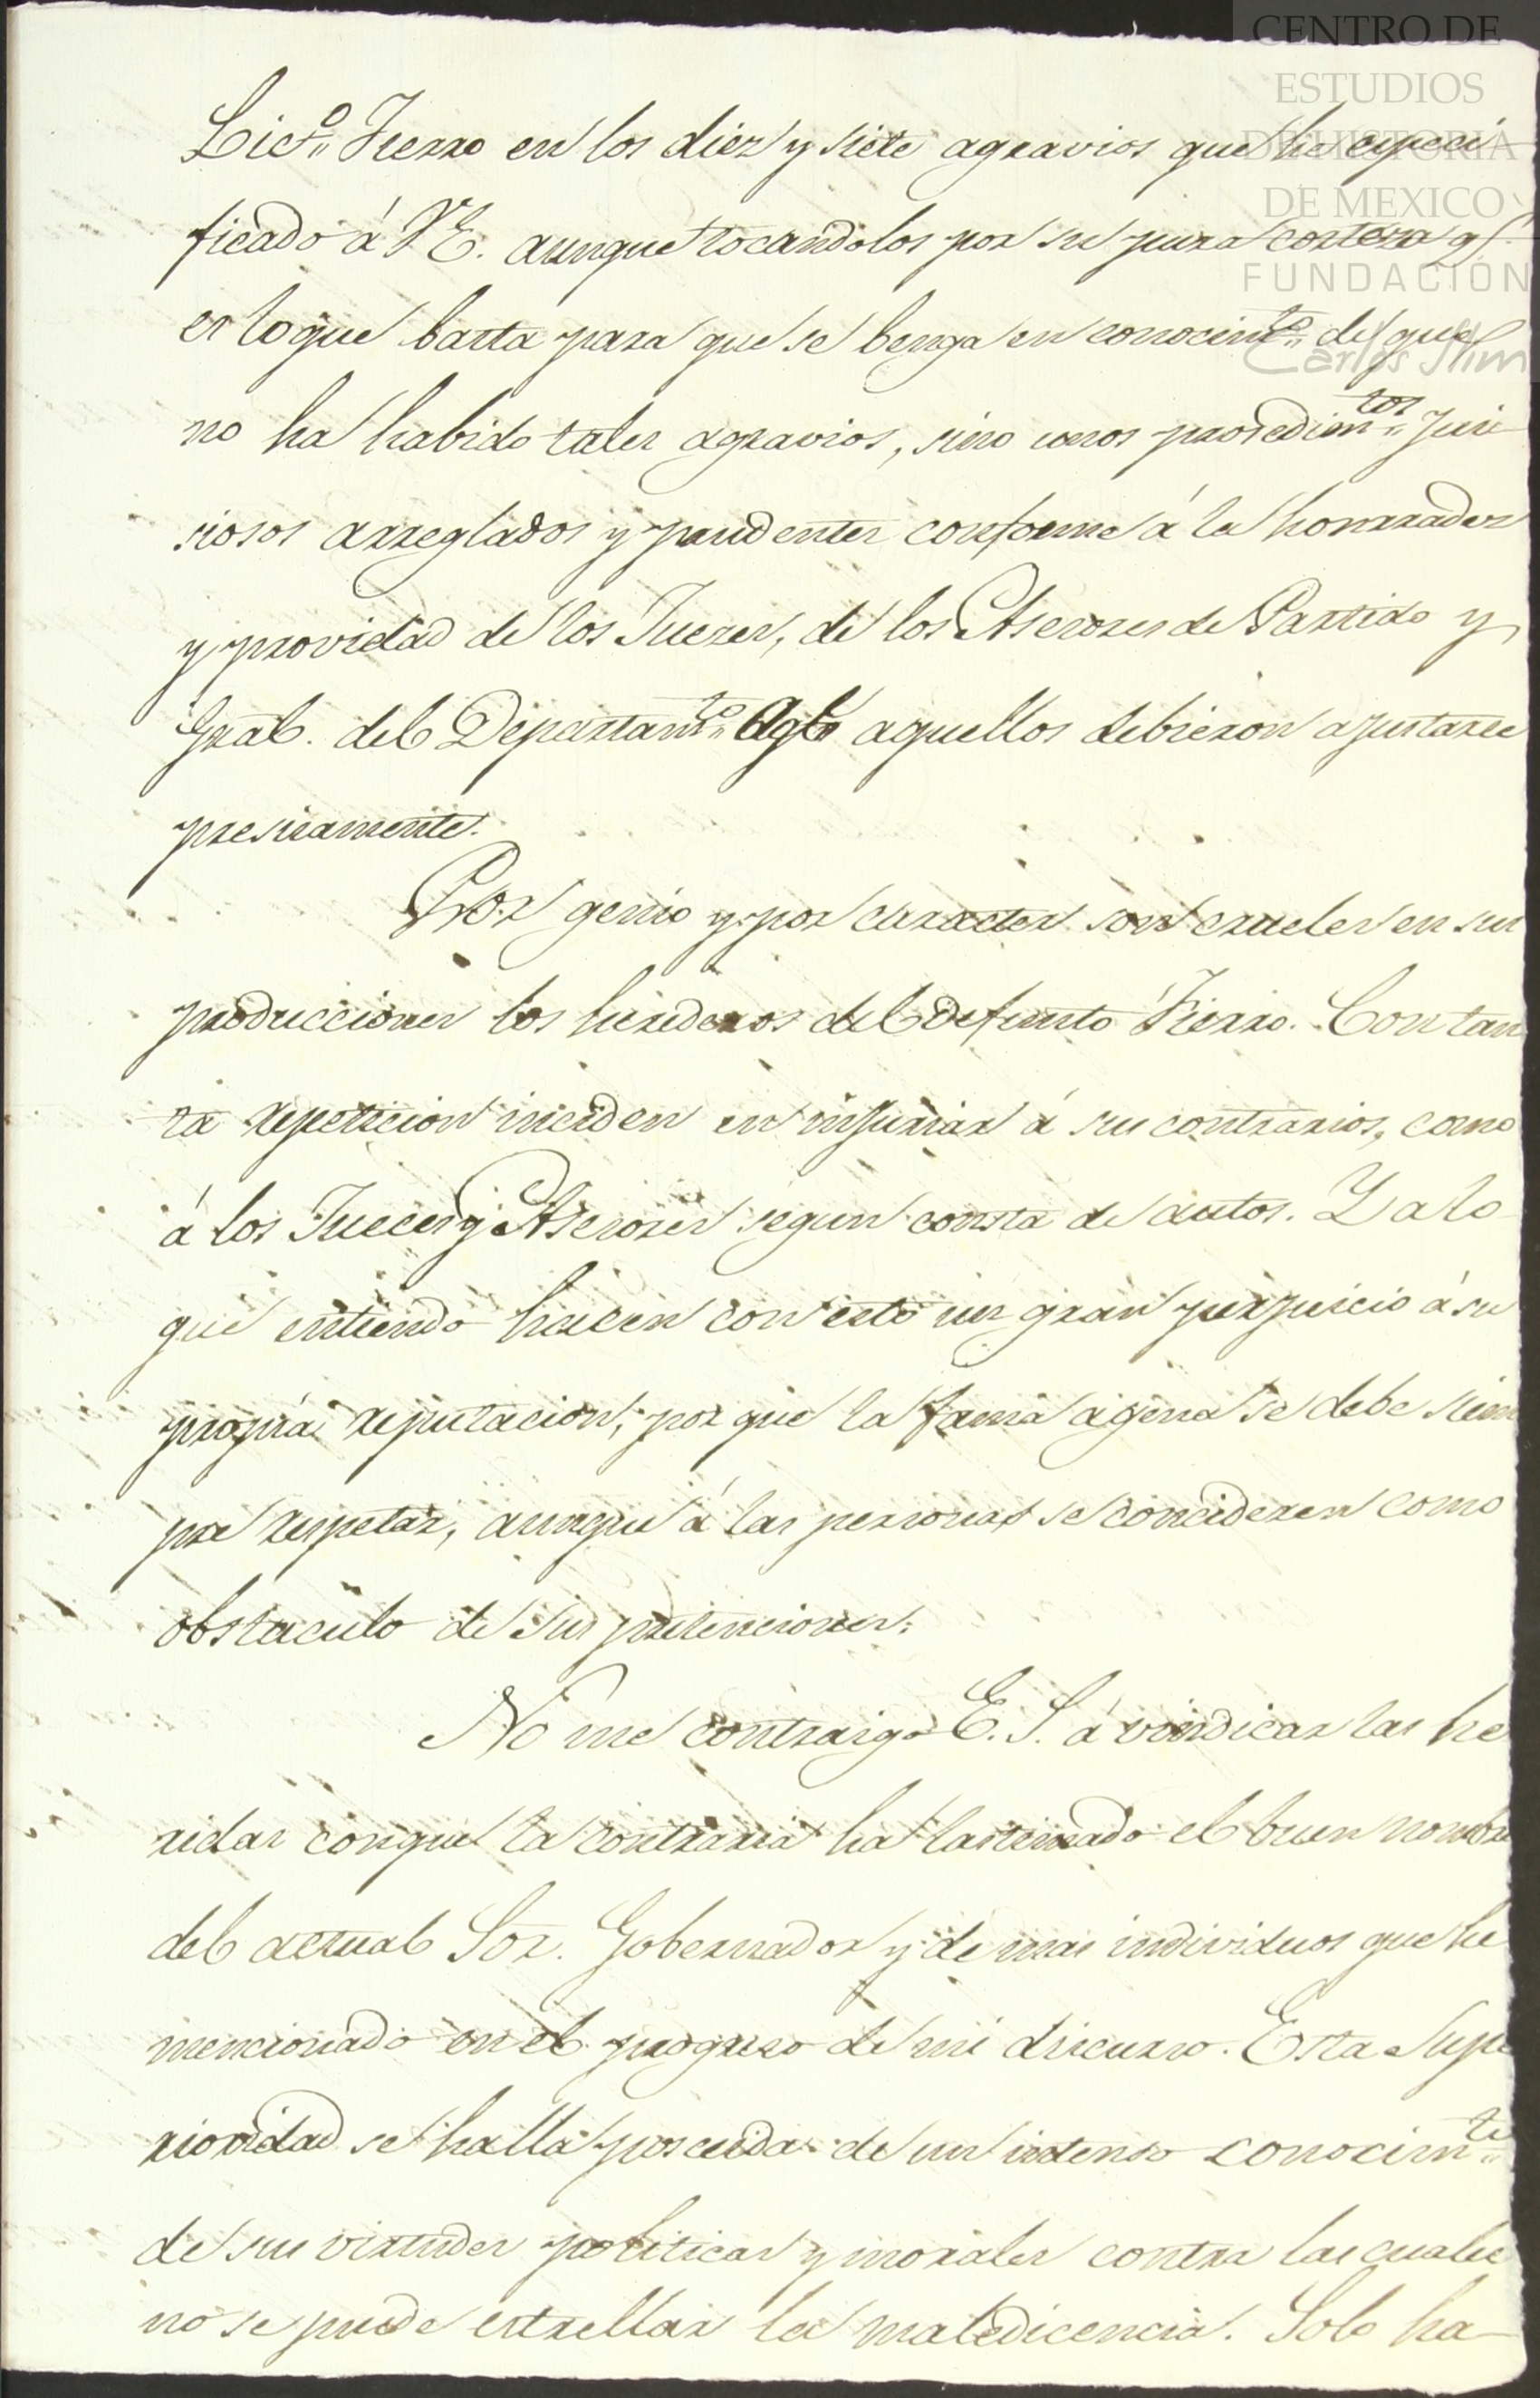 CENTRO DE
ESTUDIOS
DE HISTORIA
DE MEXICO
FUNDACIÓN
Carlos Slim
Licdo. Fierro en los diez y siete agravios que ha especi
ficado á V.E. aunque tocandolos por su pura corteza qe.
es lo que basta para que se benga en conocimto. de que
no ha habido tales agravios, sino unos prosedimtos. Jui
siosos arreglados y prudentes conforme á la honrradez
y providad de los Jueces, de los Asesores de Partido y
Gral. del Departamto. aqe. aquellos debieron ajustarse
presisamente.
Por genio y por caracter son crueles en sus
producciones los herederos del defunto Fierro. Con tan
ta repeticion inciden en injuriar á sus contrarios, como
á los Jueces y Asesores segun consta de autos. Y a lo
que entiendo hacen con esto un gran perjuicio á su
propia reputacion, por que la fama agena se debe siem
pre respetar, aunque á las personas se concideren como
obstaculo de sus pretenciones.
No me contraigo E. S. á vindicar las he
ridas conque la contraria ha lastimado el buen nombre
del actual Sor. Gobernador y demas individuos que he
mencionado en el progreso de mi discurso. Esta Supe
rioridad se halla poseida de un intenso conocimto.
de sus virtudes politicas y morales contra las cuales
no se puede estrellar la maledicencia. Solo ha